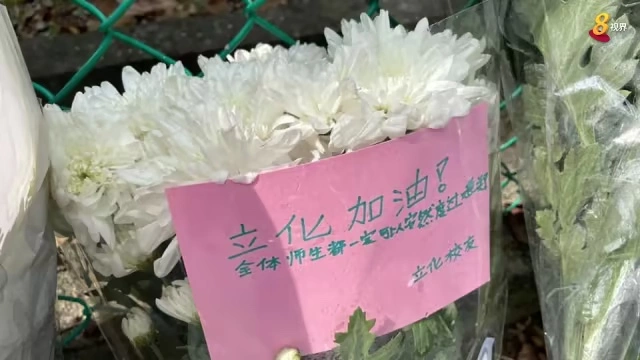 8视界
立化加油！
全体师生都一定可以安然度过难过
立化校友